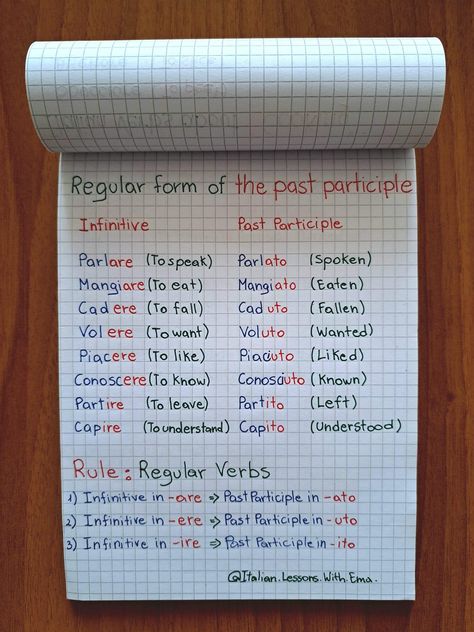 Regular form of the past participle
Infinitive Past Participle
Parlare (To speak) Parlato (Spoken)
Mangiare (To eat) Mangiato (Eaten)
Cadere (To fall) Caduto (Fallen)
Volere (To want) Voluto (Wanted)
Piacere (To like) Piaciuto (Liked)
Conoscere (To know) Conosciuto (Known)
Partire (To leave) Partito (Left)
Capire (To understand) Capito (Understood)
Rule: Regular Verbs
1) Infinitive in -are => Past Participle in -ato
2) Infinitive in -ere => Past Participle in -uto
3) Infinitive in -ire => Past Participle in -ito
@Italian.Lessons.With.Ema.